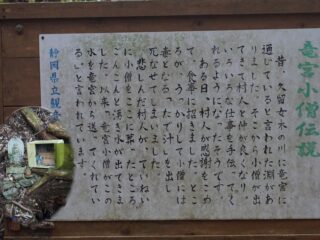 竜宮小僧伝説
昔、久留女木の川に竜宮に
通じていると言われた淵があ
りました。そこから小僧が出
てきて村人と仲が良くなり、
いろいろな仕事を手伝ってく
れるようになったそうです。
ある日、村人が感謝をこめ
て、食事に招きました。とこ
ろが、うっかりして小僧には
毒となる、たで汁を出し
死なせてしまいました。
悲しんだ村人が、ていねい
に小僧をここに葬ったところ
こんこんと湧き水が出てきま
した。以来、竜宮小僧がこの
水を竜宮から送ってくれてい
る。と言われています。
静岡県立観